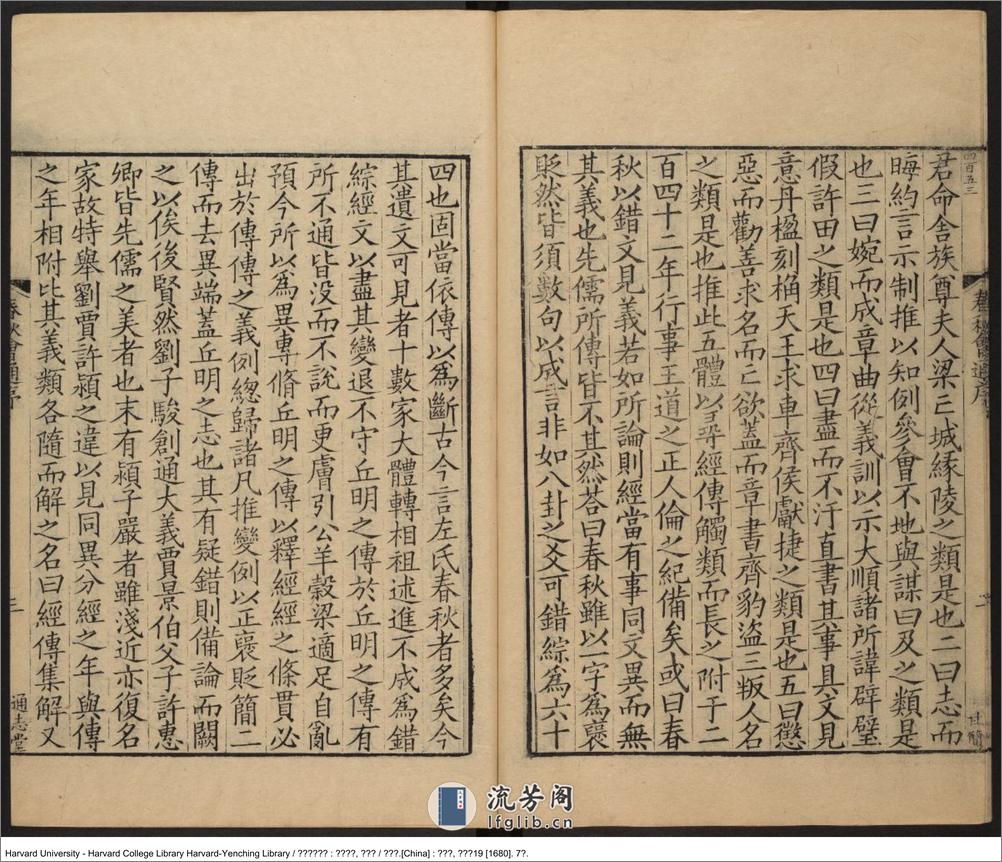 四百五三
君命舍族尊夫人梁亡城緣陵之類是也二曰志而
晦約言示制推以知例參會不地與謀曰及之類是
也三曰婉而成章曲從義訓以示大順諸所諱辟璧
假許田之類是也四曰盡而不汙直書其事具文見
意丹楹刻桷天王求車齊侯獻捷之類是也五曰懲
惡而勸善求名而亡欲蓋而章書齊豹盜三叛人名
之類是也推此五體以尋經傳觸類而長之附于二
百四十二年行事王道之正人倫之紀備矣或曰春
秋以錯文見義若如所論則經當有事同文異而無
其義也先儒所傳皆不其然荅曰春秋雖以一字為襃
貶然皆須數句以成言非如八卦之爻可錯綜為六十
四也固當依傳以為斷古今言左氏春秋者多矣今
其遺文可見者十數家大體轉相祖述進不成為錯
綜經文以盡其變退不守丘明之傳於丘明之傳有
所不通皆没而不說而更膚引公羊穀梁適足自亂
預今所以為異專脩丘明之傳以釋經經之條貫必
出於傳傳之義例總歸諸凡推變例以正襃貶簡二
傳而去異端蓋丘明之志也其有疑錯則備論而闕
之以俟後賢然劉子駿創通大義賈景伯父子許惠
卿皆先儒之美者也末有潁子嚴者雖淺近亦復名
家故特舉劉賈許潁之違以見同異分經之年與傳
之年相附比其義類各隨而解之名曰經傳集解又
春秋會通序
三
通志堂
流芳阁
lfglib.cn
Harvard University - Harvard College Library Harvard-Yenching Library / ?????? : ????, ??? / ???.[China] : ???, ???19 [1680]. 7?.